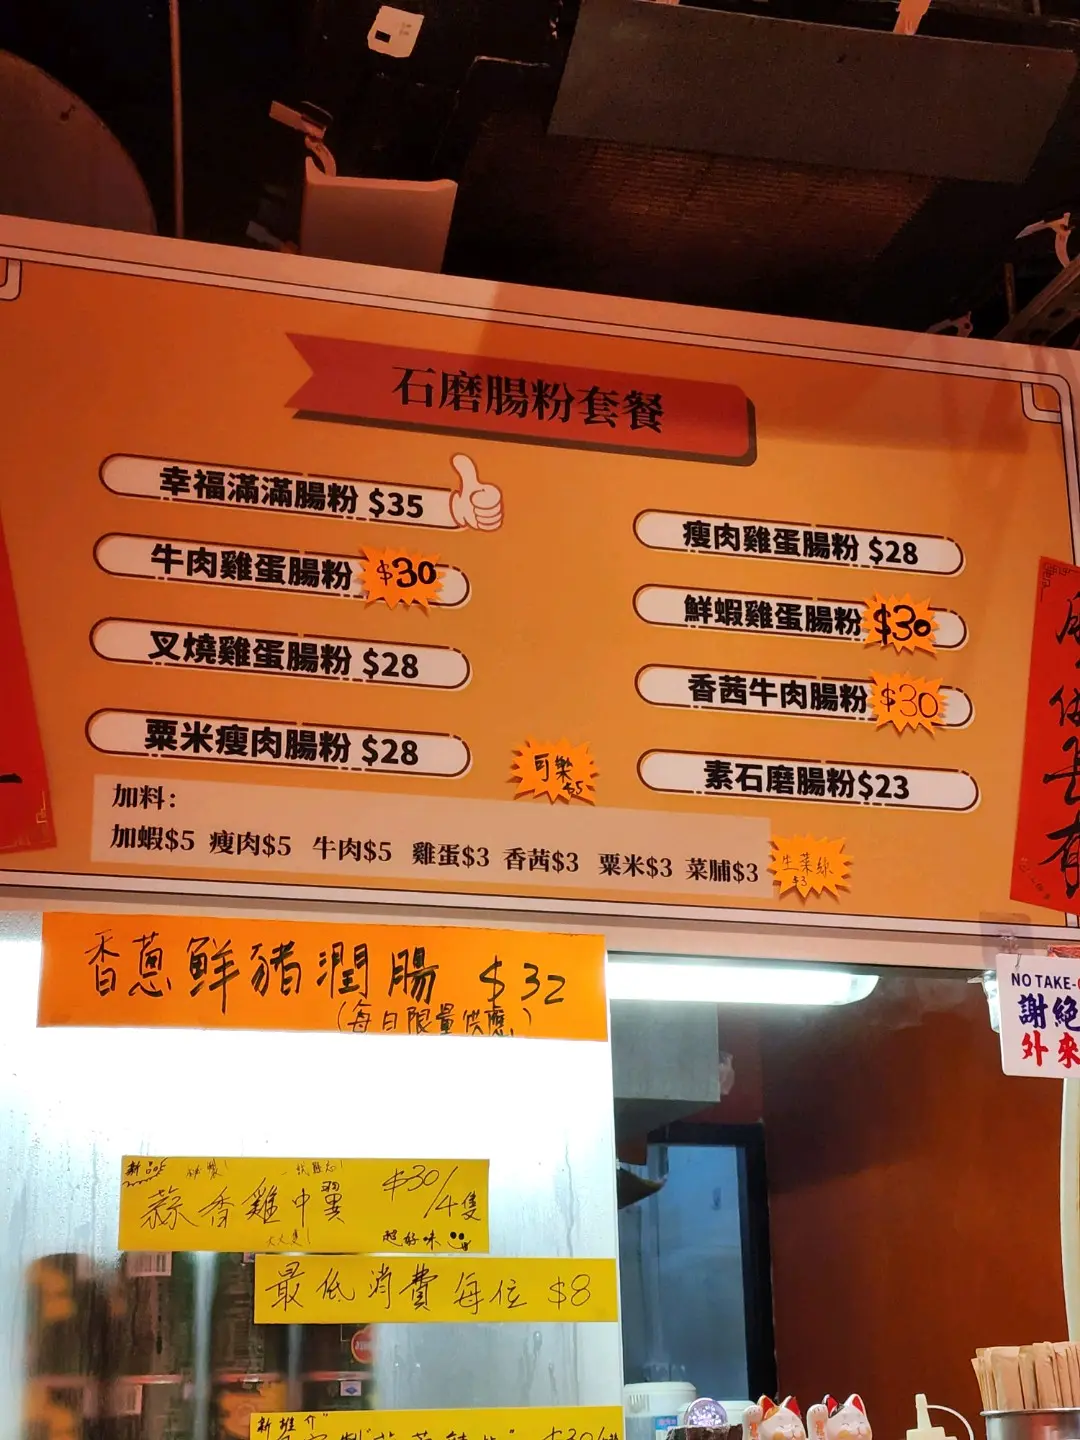 石磨腸粉套餐
幸福滿滿腸粉 $35
牛肉雞蛋腸粉 $30
叉燒雞蛋腸粉 $28
粟米瘦肉腸粉 $28
瘦肉雞蛋腸粉 $28
鮮蝦雞蛋腸粉 $30
香茜牛肉腸粉 $30
素石磨腸粉$23
可樂
$5
加料:
加蝦$5 瘦肉$5 牛肉$5 雞蛋$3 香茜$3 粟米$3 菜脯$3
生菜絲
$3
香蔥鮮豬潤腸 $32
(每日限量供應)
NO TAKE-
謝絕
外來
新品
蒜香雞中翼 $30/4隻
超好味
最低消費每位 $8
新推介